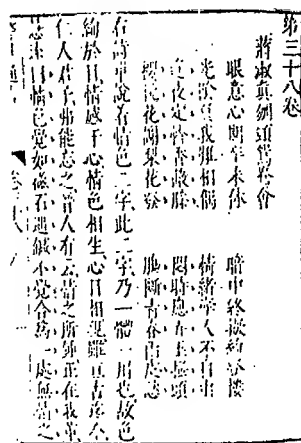 第三十八卷
蔣淑真刎頸鴛鴦會
眼意心期卒未休 暗中終擬約秦樓
光陰負我難相偶 情緒牽人不自由
遙夜定憐香蔽膝 悶時應弄玉搔頭
櫻桃花謝梨花發 腸斷青春兩處愁
右詩單說着情色二字此二字乃一體一用也故色
絢於目情感于心情色相生心目相視雖亘古迄今
仁人君子弗能忘之晉人有云情之所鍾正在我輩
慧遠曰情色覺如磁石遇鍼不覺合為一處無情之